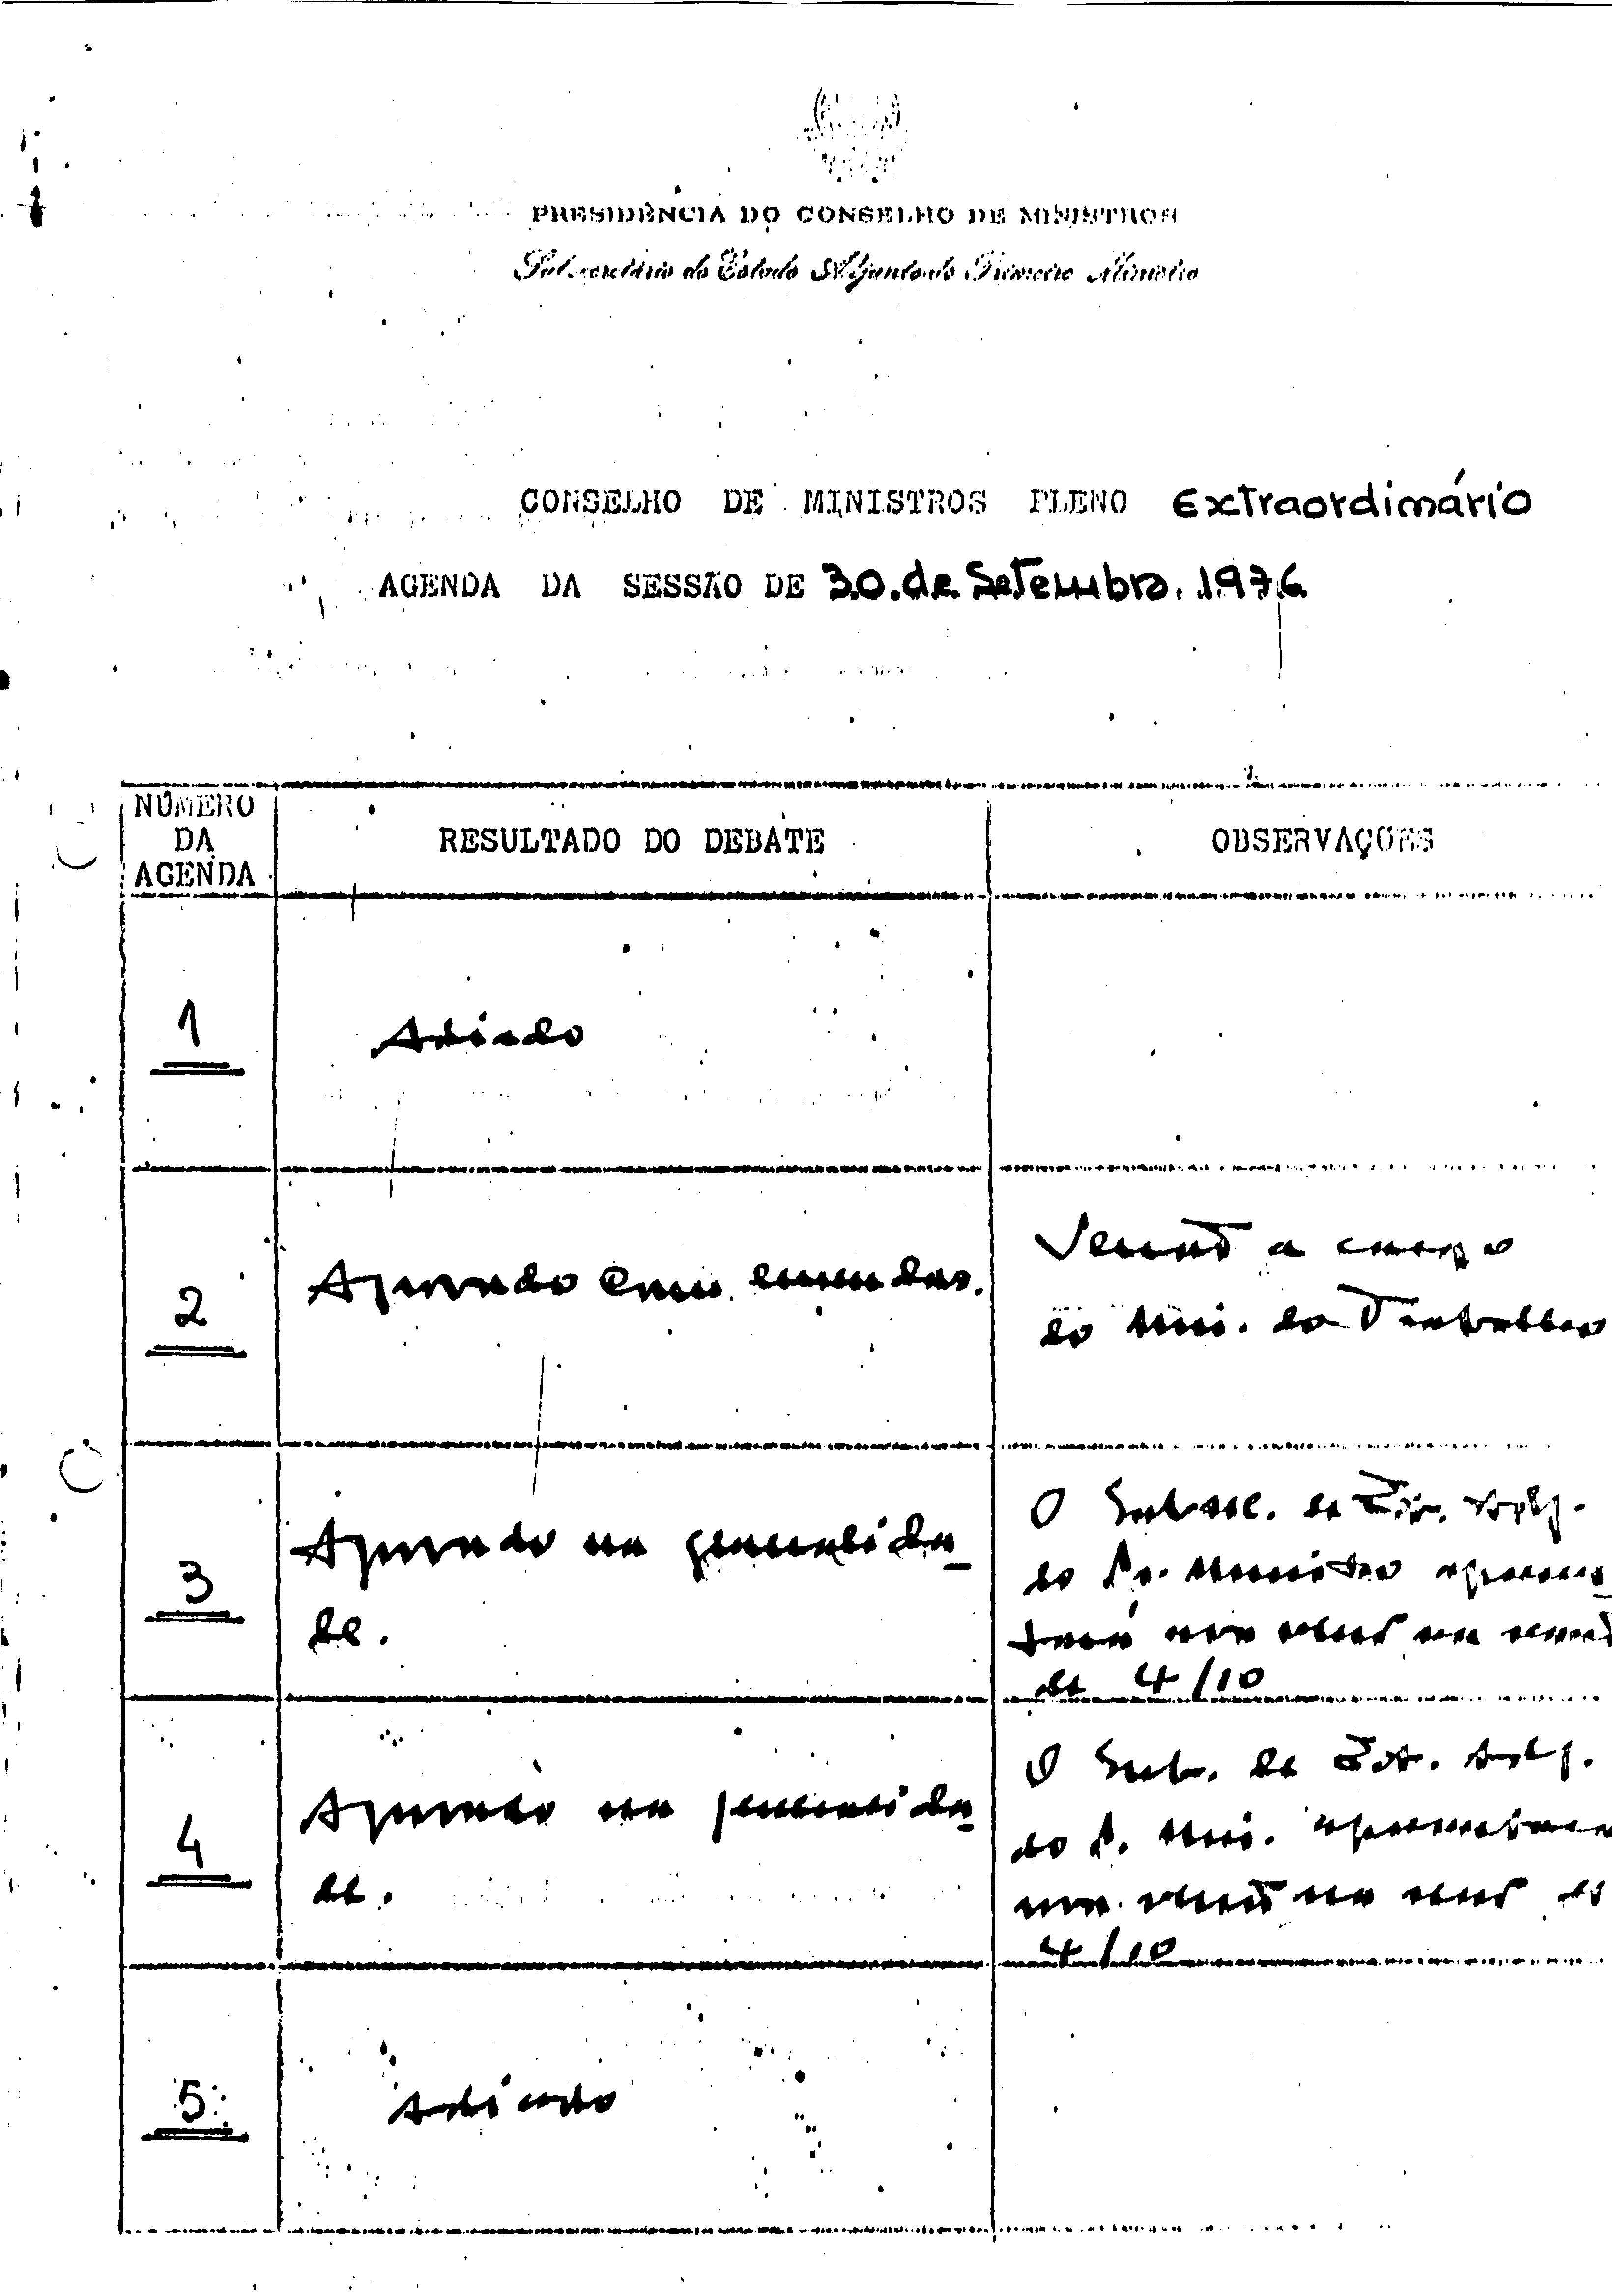 PRESIDÊNCIA DO CONSELHO DE MINISTROS
Subsecretário de Estado Adjunto do Primeiro Ministro
CONSELHO DE MINISTROS PLENO Extraordinário
AGENDA DA SESSÃO DE 30.de.Setembro.1976
NÚMERO
DA
AGENDA
RESULTADO DO DEBATE
OBSERVAÇÕES
1
Adiado
2
Aprovado com emendas.
Versão a cargo
do Min. do Trabalho
3
Aprovado na generalida_
de.
O Subsec. de Est. Adj.
do Pr. Ministro apresen_
tará nova versão na
de 4/10
4
Aprovado na generalida_
de.
O Sub. de Est. Adj.
do P. Min. apresentará
nova versão na
4/10
5
Adiado